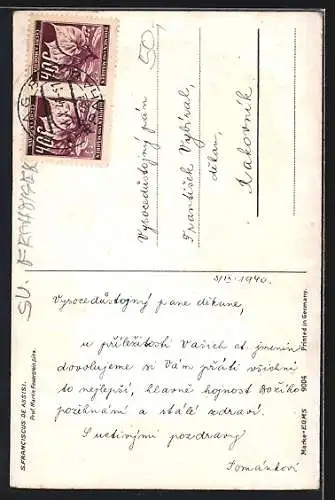 Vysocedůstojný pán
František Vybíral,
děkan,
Rakovník
50
3/IX. 1940.
Vysocedůstojný pane děkane,
u příležitosti Vašich ct. jmenin
dovolujeme si Vám přáti všichni
to nejlepší, hlavně hojnost Božího
požehnání a stálé zdraví.
S uctivými pozdravy
Tománkovi
S. FRANCISCUS DE ASSISI.
Prof. Martin Feuerstein, pinx.
Marke »EGMS 9004 Printed in Germany.
40h
40h